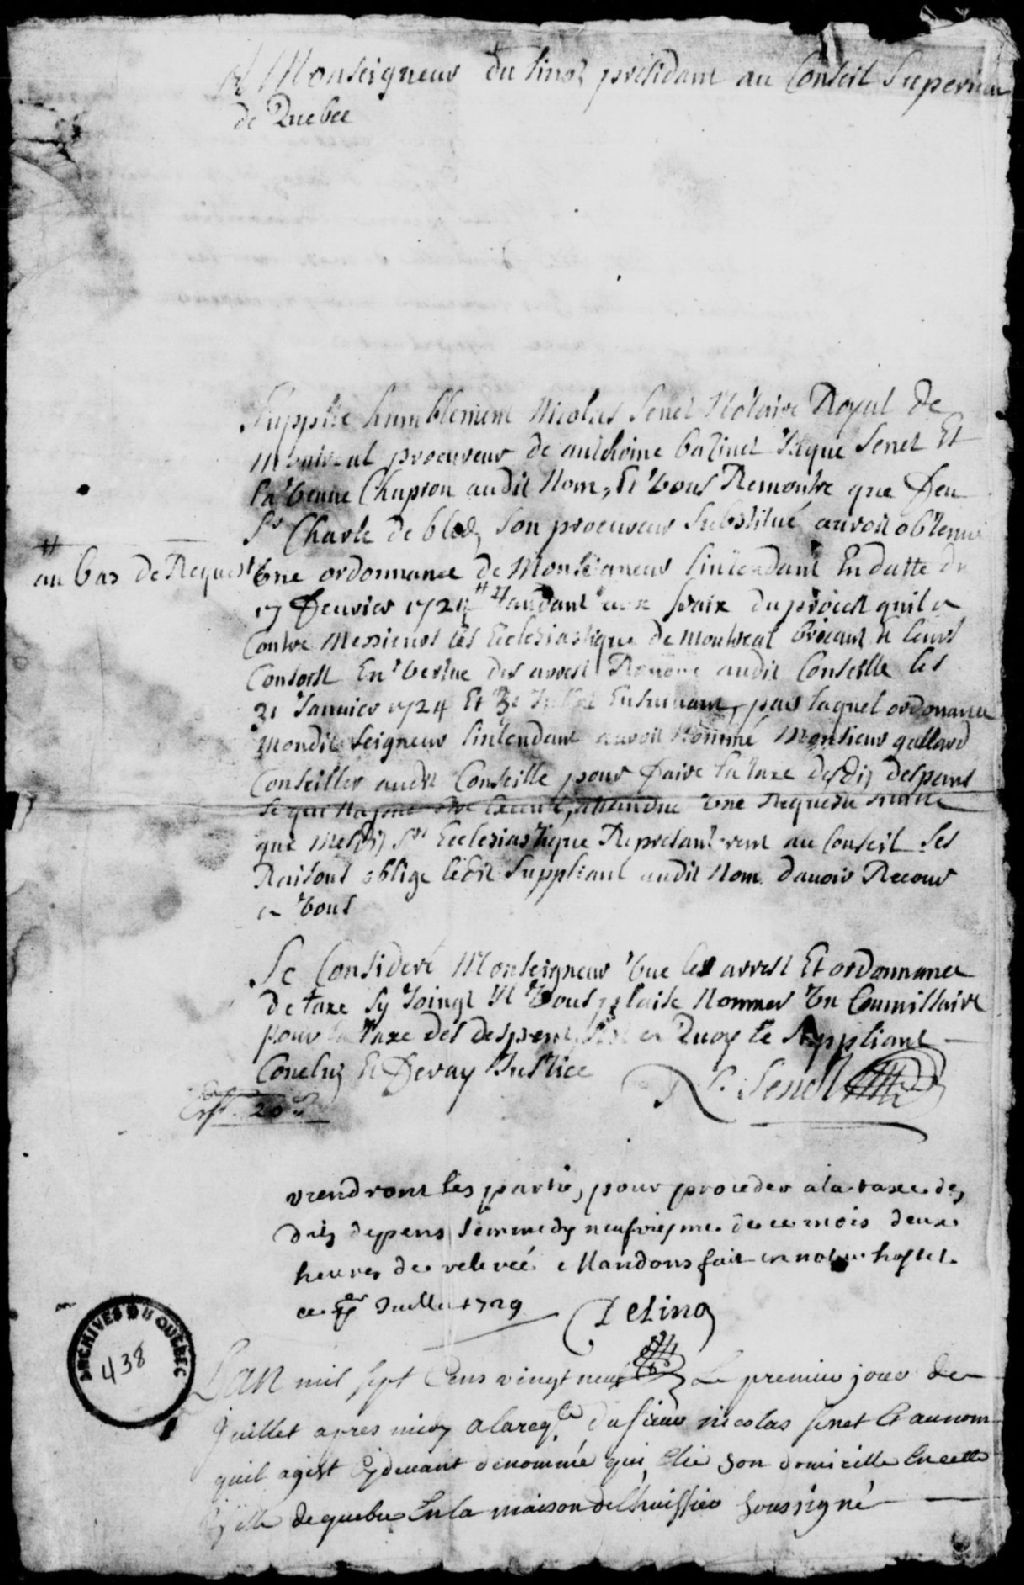 A Monseigneur du sino présidant au Conseil Superieur
de Quebec
Supplie humblement Nicolas Senet Notaire Royal de
Montreal procureur de anthoine bazinet Jaque Senet Et
la veuve Chapron audit Nom, Et vous Remontre que feu
Sr Charle de blez son procureur Substitué auroit obtenu
au bas de Requeste
Une ordonnance de Monseigneur Lintendant En datte du
17 fevrier 1724 tandant aux fraix du procest quil a
Contre Messieurs les Eclesiastique de Montreal Bricaut Et leurs
Consorst En vertue des arrest Randue audit Conseille les
31 Janvier 1724 Et 3e Ensuivant, par laquel ordonnance
Mondit Seigneur Lintendant auroit Nommé Monsieur gallard
Conseiller audit Conseille pour faire la taxe desdis despans
Ce qui Na pas Ete Execute, attandue Une Requeste
que Mesdis Srs Ecclesiastique Represanterent au Conseil Ses
Raisons oblige ledit Suppliant audit Nom davoir Recour
a vous
Se Consideré Monseigneur Vue les arrest Et ordonnance
de taxe Sy Joingt Il vous plaise Nommer Un Commissaire
pour la taxe des despens a Quoy le Suppliant
Conclus Et Feray Justice
N. Senet
viendront les partis, pour proceder a la taxe des
dits depens Sammedy neufviesme de ce mois deux
heures de relevée Mandons fait en notre hostel
ce 1er Juillet 1729 Delino
ARCHIVES DU QUÉBEC
438
Lan mil sept Cens vingt neuf Le premier jour de
Juillet apres midy a la reqte du sieur nicolas senet Et au nom
quil agist Cy devant dénommé qui Elie son domicille En cette
Ville de quebec En la maison de lhuissier soussigné